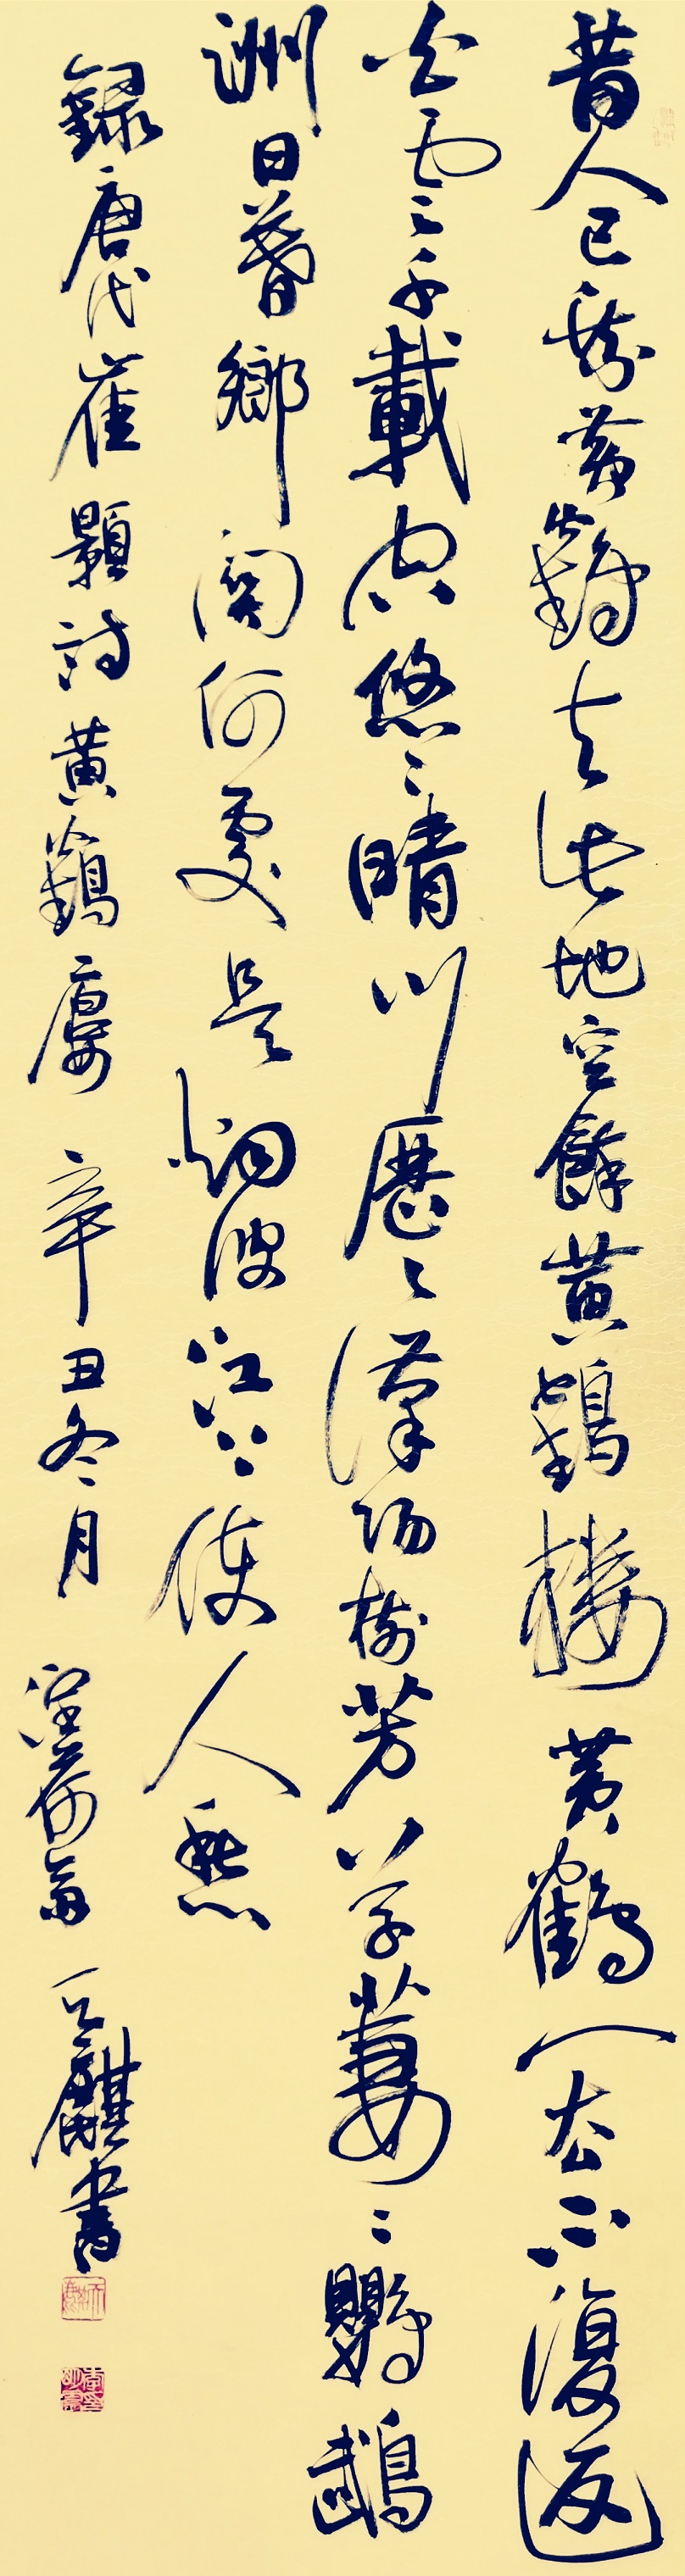 昔人已乘黃鶴去此地空餘黃鶴樓黃鶴一去不復返
白雲千載空悠々晴川歷々漢陽樹芳草萋々鸚鵡
洲日暮鄉關何處是烟波江上使人愁
錄唐代崔顥詩黃鶴樓 辛丑冬月 麒書